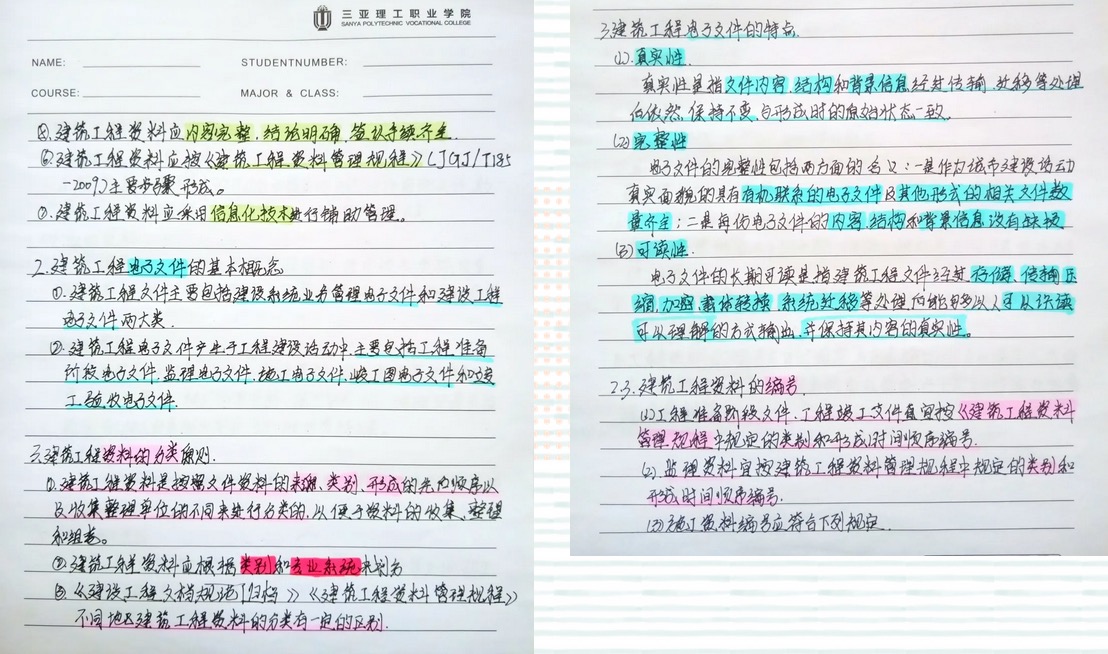 三亚理工职业学院
SANYA POLYTECHNIC VOCATIONAL COLLEGE
NAME:
STUDENTNUMBER:
COURSE:
MAJOR & CLASS:
⑤.建筑工程资料应内容完整、结论明确、签认手续齐全.
⑥.建筑工程资料应按《建筑工程资料管理规程》(JGJ/T185
-2009)主要步骤形成。
⑦.建筑工程资料应采用信息化技术进行辅助管理。
2.建筑工程电子文件的基本概念
①.建筑工程文件主要包括建设系统业务管理电子文件和建设工程
电子文件两大类.
②.建筑工程电子文件产生于工程建设活动中,主要包括工程准备
阶段电子文件.监理电子文件.施工电子文件.竣工图电子文件和竣
工验收电子文件.
3.建筑工程资料的分类原则.
①.建筑工程资料是按照文件资料的来源、类别、形成的先后顺序以
及收集整理单位的不同来进行分类的,以便于资料的收集、整理
和组卷。
②.建筑工程资料应根据类别和专业系统来划分
③.《建设工程文档规范[归档]》《建筑工程资料管理规程》
不同地区建筑工程资料的分类有一定的区别.
3.建筑工程电子文件的特点.
(1).真实性.
真实性是指文件内容、结构和背景信息经过传输、迁移等处理
后依然保持不变,与形成时的原始状态一致.
(2)完整性
电子文件的完整性包括两方面的含义:一是作为城市建设活动
真实面貌的具有有机联系的电子文件及其他形式的相关文件数
量齐全;二是每份电子文件的内容、结构和背景信息没有缺损
(3)可读性.
电子文件的长期可读是指建筑工程文件经过存储、传输、压
缩、加密、载体转换、系统迁移等处理后能够以人可以识读
可以理解的方式输出,并保持其内容的真实性。
2.3.建筑工程资料的编号
(1)工程准备阶段文件、工程竣工文件宜按《建筑工程资料
管理规程》中规定的类别和形成时间顺序编号.
(2).监理资料宜按建筑工程资料管理规程中规定的类别和
形成时间顺序编号.
(3)施工资料编号应符合下列规定.